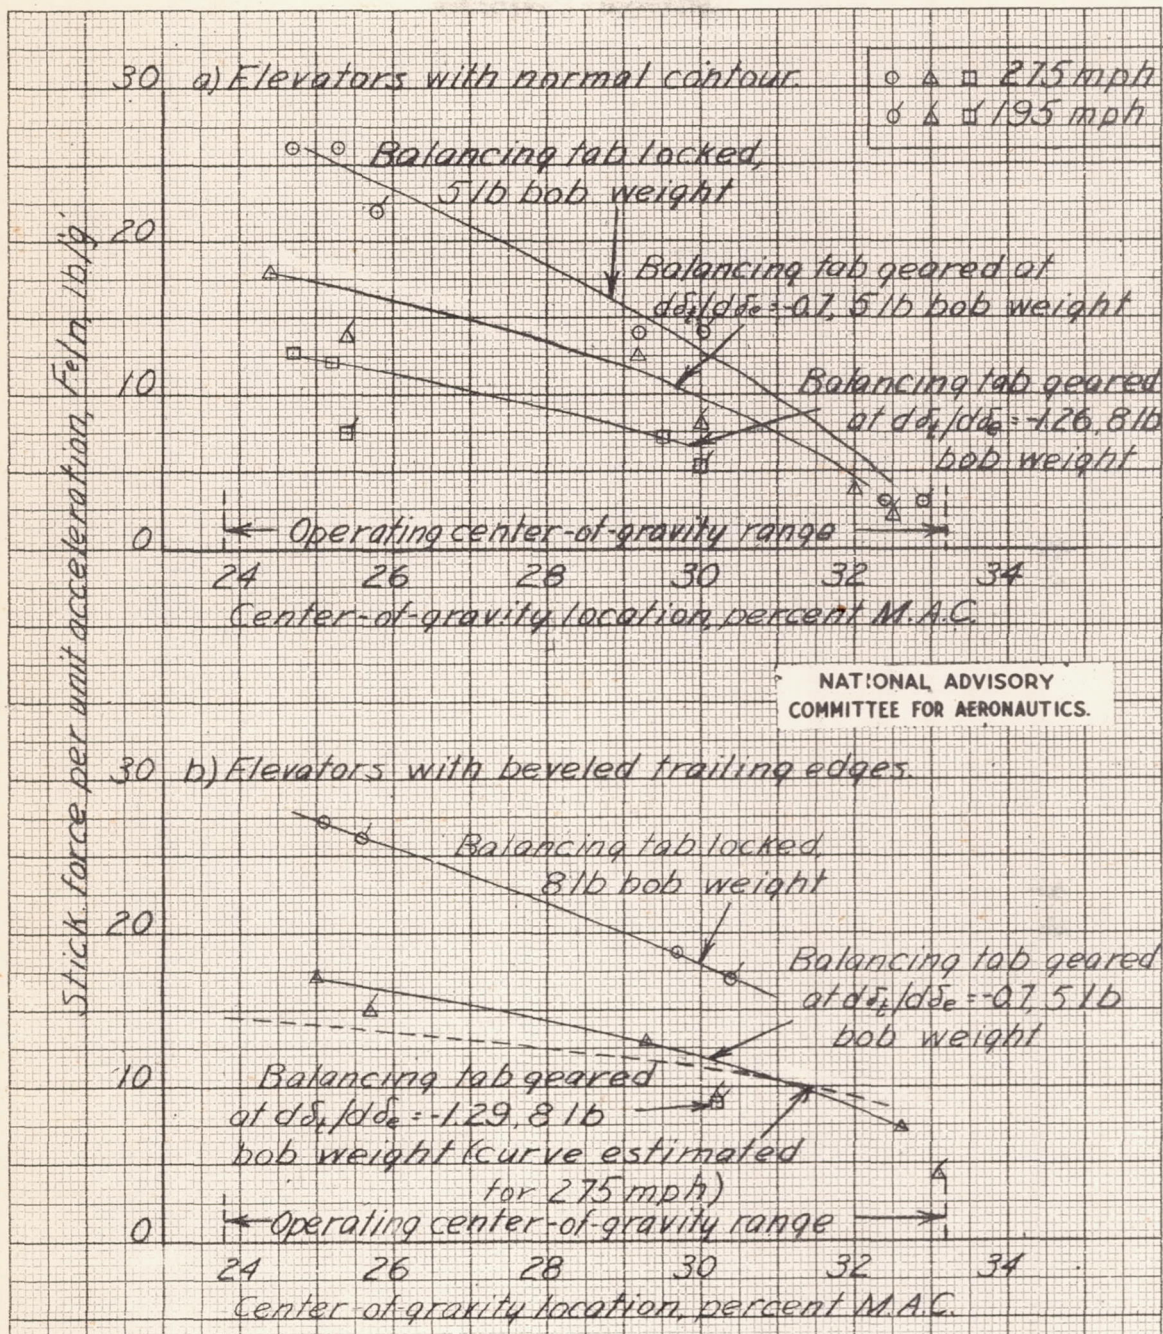 30 a) Elevators with normal contour.
275 mph
195 mph
Balancing tab locked,
5 lb bob weight
20
Balancing tab geared at
dδt/dδe = -0.7, 5 lb bob weight
10
Balancing tab geared
at dδt/dδe = -1.26, 8 lb
bob weight
Operating center-of-gravity range
0
24 26 28 30 32 34
Center-of-gravity location, percent M.A.C.
Stick force per unit acceleration, Fe/n, lb/g
NATIONAL ADVISORY
COMMITTEE FOR AERONAUTICS.
30 b) Elevators with beveled trailing edges.
Balancing tab locked,
8 lb bob weight
20
Balancing tab geared
at dδt/dδe = -0.7, 5 lb
bob weight
10
Balancing tab geared
at dδt/dδe = -1.29, 8 lb
bob weight (curve estimated
for 275 mph)
Operating center-of-gravity range
0
24 26 28 30 32 34
Center-of-gravity location, percent M.A.C.